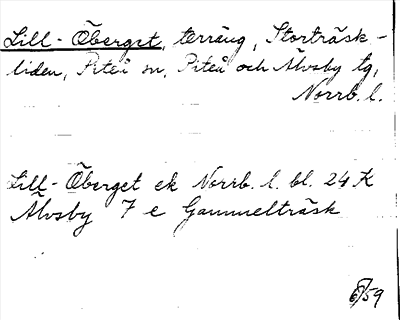 Lill-Öberget, terräng, Storträsk-
liden, Piteå sn, Piteå och Älvsby tg,
Norrb. l.
Lill-Öberget ek Norrb. l. bl. 24 K
Älvsby 7 e Gammelträsk
/59